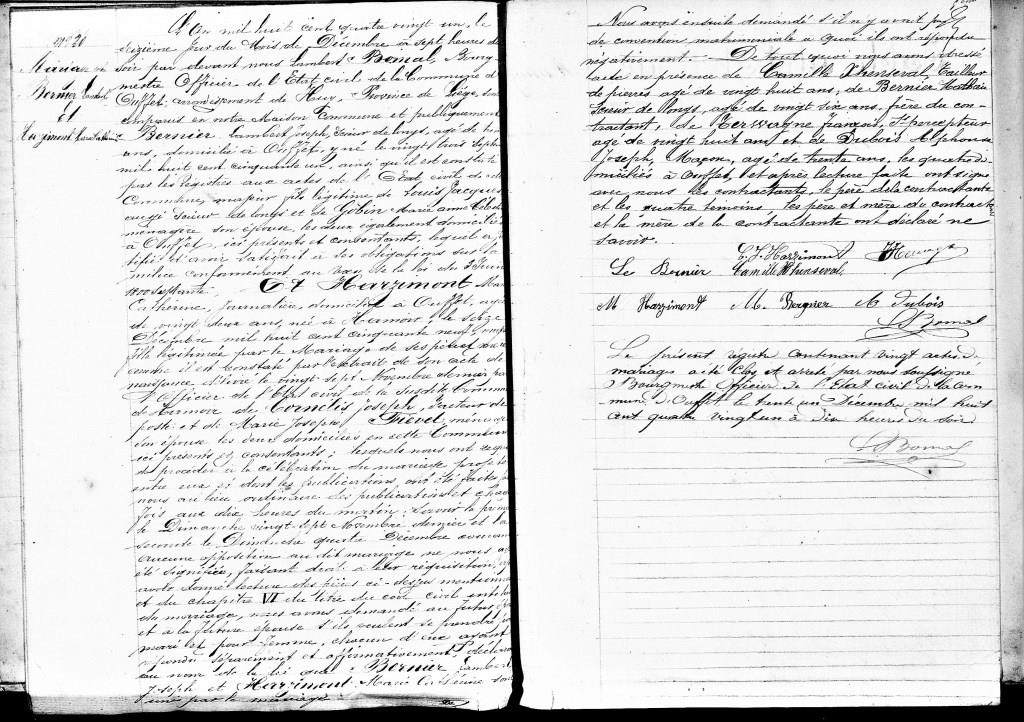 N° 20
Mariage
Bernier Lambert
et
Harzimont
L'An mil huit cent quatre vingt un, le
seizième jour du Mois de Décembre à sept heures du
soir par devant nous Lambert Bomal, Bourg-
mestre Officier de l'Etat civil de la Commune d'
Ouffet, arrondissement de Huy, Province de Liège, sont
comparus en notre Maison Commune et publiquement
Bernier Lambert Joseph, Scieur de longs, agé de trente
ans, domicilié à Ouffet, y né le vingt trois Septembre
mil huit cent cinquante un, ainsi qu'il est constaté
par les registres aux actes de l'Etat civil de cette
Commune, majeur fils légitime de Louis Jacques
agé Scieur de longs et de Gobin Marie Anne Céleste
ménagère son épouse, les deux également domiciliés
à Ouffet, ici présents et consentants, lequel a jus
tifié avoir satisfait à ses obligations sur la
milice conformément au vœu de la loi du 3 Juin
1800 Septante. Et Harzimont Marie
Catherine, Journalière, domiciliée à Ouffet, agée
de vingt deux ans, née à Hermove, le seize
Décembre mil huit cent cinquante neuf,
fille légitimée par le Mariage de ses père et mère
comme il est constaté par l'extrait de son acte de
naissance délivré le vingt-sept Novembre dernier par
l'Officier de l'Etat civil de la Susdite Commune
de Hermove de Cornélis Joseph, facteur de
poste et de Marie Joseph Fievet, ménagère
son épouse les deux domiciliés en cette Commune
ici présents et consentants; lesquels nous ont requis
de procéder à la célébration du mariage projeté
entre eux et dont les publications ont été faites par
nous au lieu ordinaire des publications et chaque
fois aux dix heures du matin: Savoir la première
le Dimanche vingt-sept Novembre dernier et la
seconde le Dimanche quatre Décembre courant
Aucune opposition au dit mariage ne nous ayant
été signifiée, faisant droit à leur réquisition,
avoir donné lecture des pièces ci-dessus mentionnées
et du chapitre VI du titre du code civil intitulé
du mariage, nous avons demandé au futur époux
et à la future épouse s'ils veulent se prendre pour
mari et pour femme, chacun d'eux ayant
répondu séparément et affirmativement, déclarons
au nom de la loi que Bernier Lambert
Joseph et Harzimont Marie Catherine sont
unis par le mariage
Nous avons ensuite demandé s'il n'y avait pas
de convention matrimoniale à quoi ils ont répondu
négativement. De tout quoi nous avons dressé
acte en présence de Camille Thenserval, Tailleur
de pierres agé de vingt huit ans, de Bernier
Scieur de longs, agé de vingt six ans, frère du con-
tractant, de Terwagne françois, Percepteur
agé de vingt huit ans et de Dubois Alphonse
Joseph, Maçon, agé de trente ans, les quatre do
miciliés à Ouffet, et après lecture faite ont signé
avec nous les contractants, le père de la contractante
et les quatre témoins les père et mère du contract
et la mère de la contractante ont déclaré ne
savoir.
C. J. Harzimont
Le Bernier Camille Thenserval
M Harzimont M. Bernier A Dubois
L Bomal
Le présent régistre contenant vingt actes de
mariages a été Clos et arrêté par nous soussigné
Bourgmestre Officier de l'Etat civil de la Com
mune d'Ouffet le trent un Décembre mil huit
cent quatre vingt un à dix heures du soir.
L Bomal